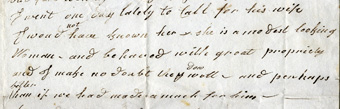 I went one day lately to call for his wife
I wou'd not have known her - she is a modest looking
Woman - and behaved with great propriety
and I make no doubt they'll do well - and perhaps
better
than if we had made a match for him -